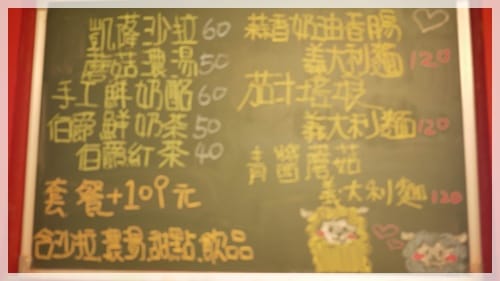 凱薩沙拉 60
蘑菇濃湯 50
手工鮮奶酪 60
伯爵鮮奶茶 50
伯爵紅茶 40
套餐+109元
含沙拉.濃湯.甜點.飲品
蒜香奶油香腸
義大利麵 120
茄汁培根
義大利麵 120
青醬蘑菇
義大利麵 120